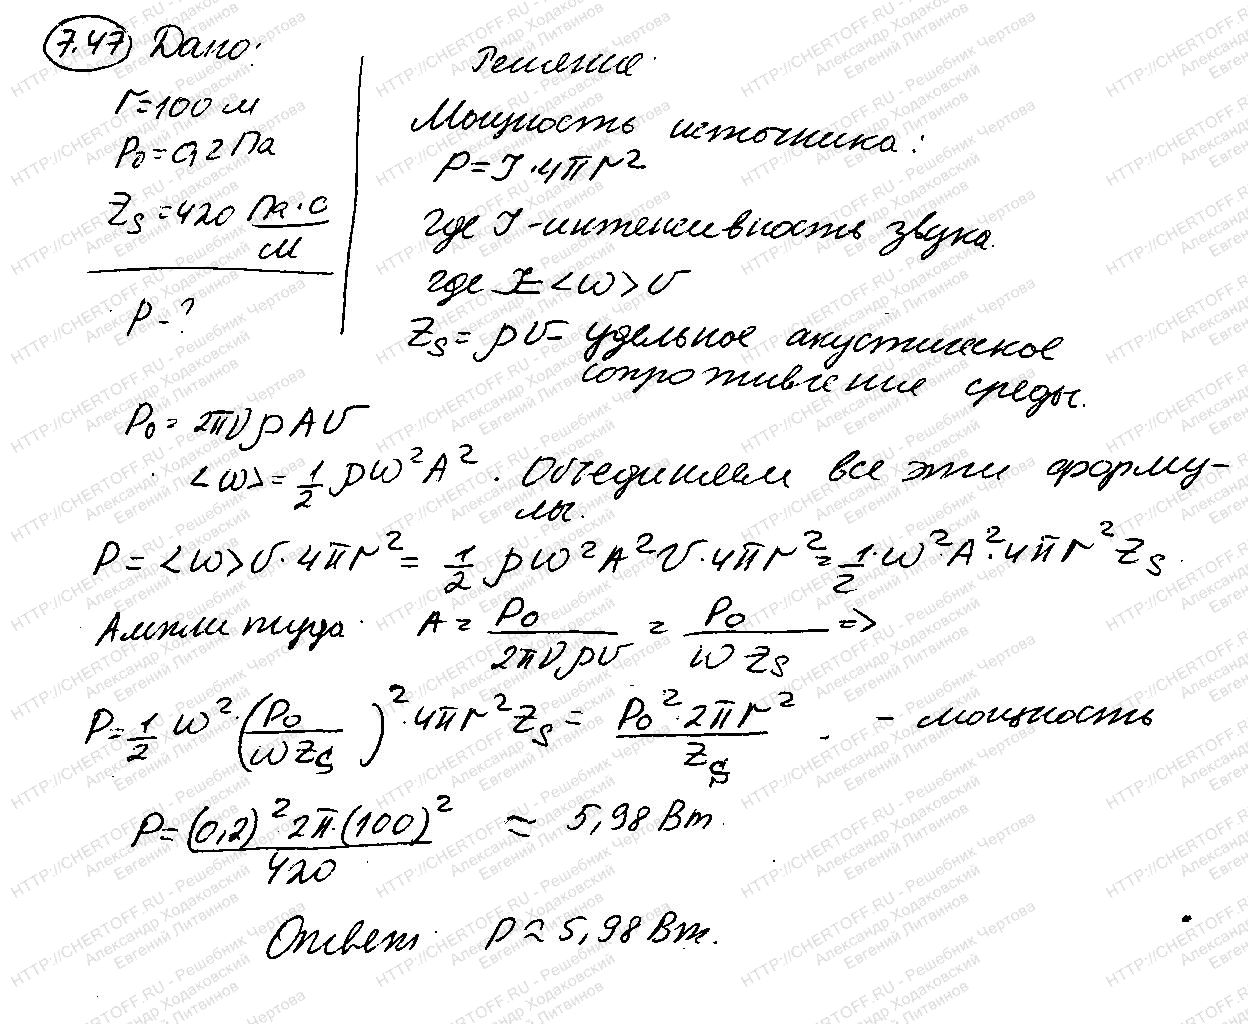 7.47 Дано:
r=100 м
P₀=0,2 Па
Z_S=420 Па·с/м
P-?
Решение
Мощность источника:
P=I·4πr²
где I-интенсивность звука.
где I=<w>υ
Z_S=ρυ- удельное акустическое
сопротивление среды.
P₀=2πνρAυ
<w>=1/2 ρω²A². Объединяем все эти форму-
лы.
P=<w>υ·4πr²=1/2 ρω²A²υ·4πr²=1/2·ω²A²·4πr²Z_S.
Амплитуда A=P₀/2πνρυ=P₀/ωZ_S=>
P=1/2 ω²·(P₀/ωZ_S)²·4πr²Z_S=P₀²·2πr²/Z_S. - мощность
P=(0,2)²·2π·(100)²/420 ≈ 5,98 Вт.
Ответ P≈5,98 Вт.
HTTP://CHERTOFF.RU - Решебник Чертова
Александр Ходаковский
Евгений Литвинов